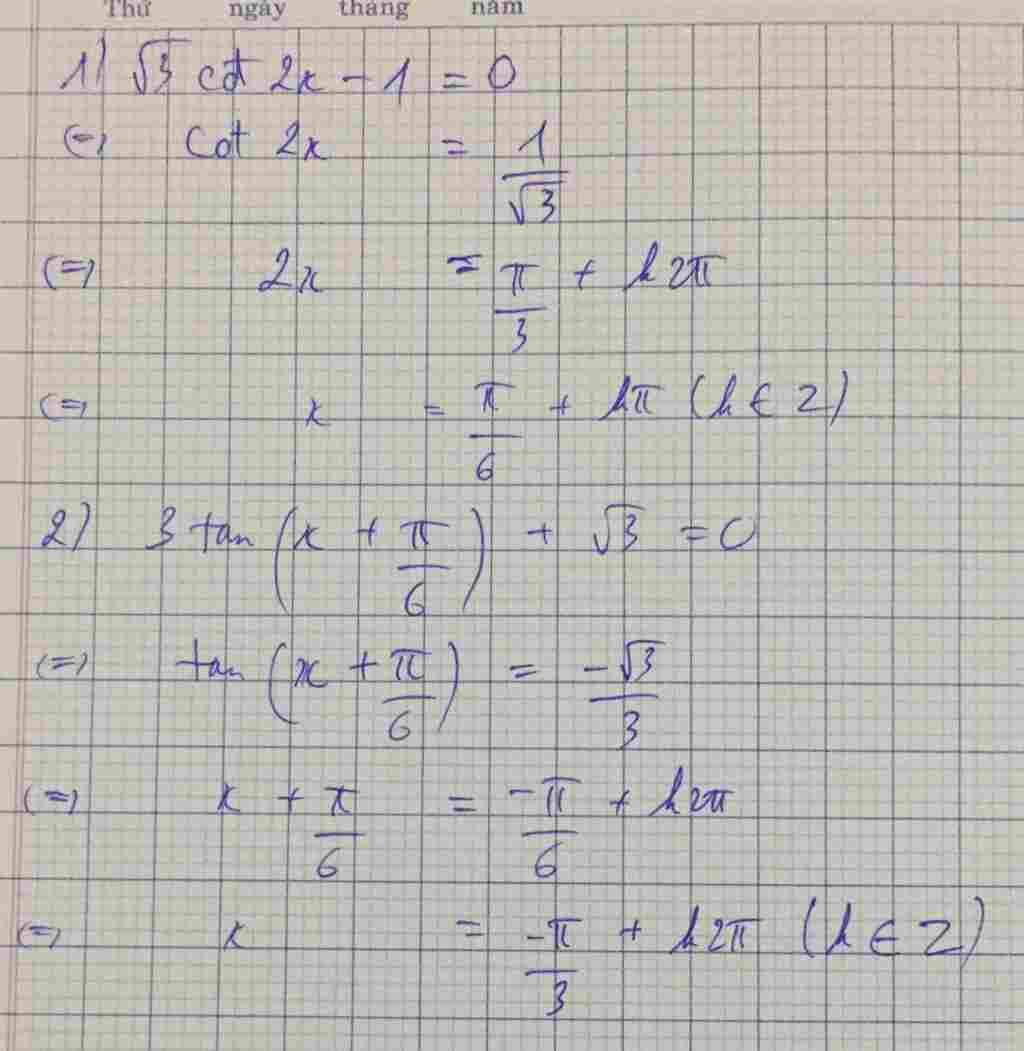 Thứ ngày tháng năm
1) √3 cot 2x - 1 = 0
(=) cot 2x = 1/√3
(=) 2x = π/3 + k2π
(=) x = π/6 + kπ (k ∈ Z)
2) 3 tan (x + π/6) + √3 = 0
(=) tan (x + π/6) = -√3/3
(=) x + π/6 = -π/6 + k2π
(=) x = -π/3 + k2π (k ∈ Z)